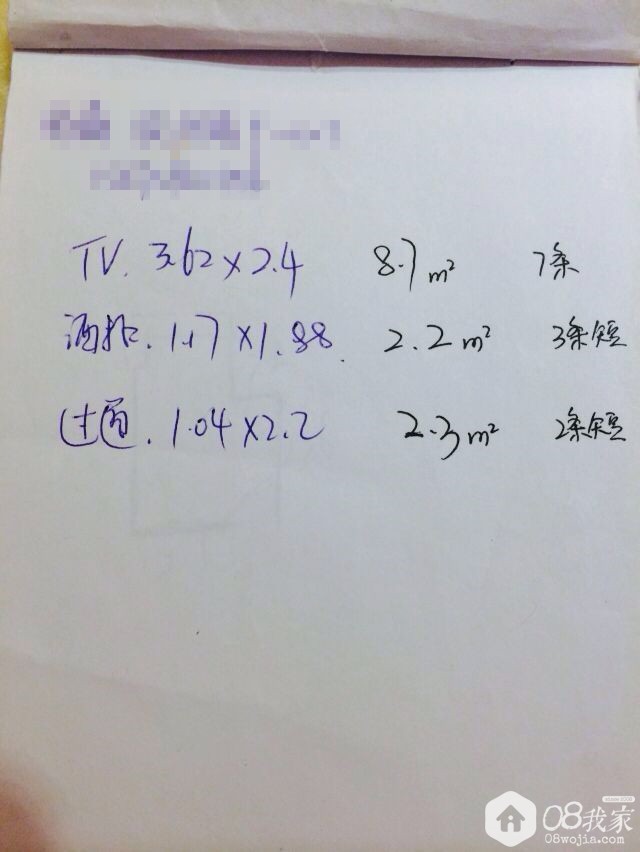 TV. 3.62×2.4 8.7m² 7条
酒柜. 1.17×1.88. 2.2m² 3条短
过道. 1.04×2.2 2.3m² 2条短
08我家
08wojia.com